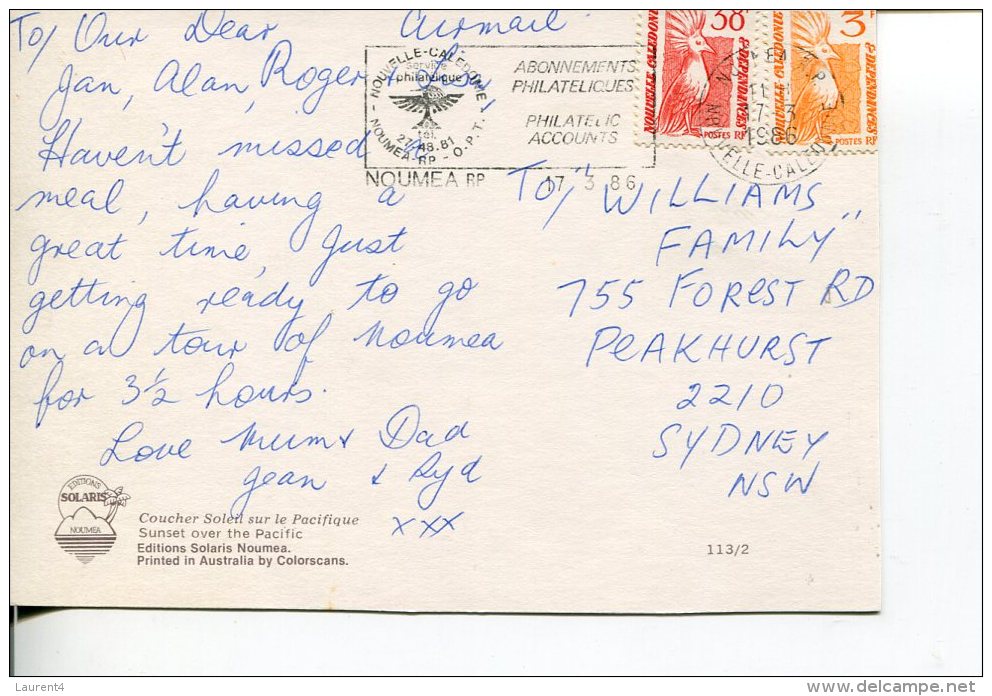 To/ Our Dear Airmail
Jan, Alan, Roger
Haven't missed a
meal, having a
great time, just
getting ready to go
on a tour of Noumea
for 3½ hours.
Love Mum & Dad
Jean & Syd
xxx
To/ "WILLIAMS
FAMILY"
755 FOREST RD
PEAKHURST
2210
SYDNEY
NSW
NOUVELLE-CALEDONIE
Service
philatélique
tél.
NOUMEA-RP - O.P.T.
ABONNEMENTS
PHILATELIQUES
PHILATELIC
ACCOUNTS
NOUMEA RP 17 3 86
38F
NOUVELLE CALEDONIE
& DEPENDANCES
POSTES RF
3F
NOUVELLE CALEDONIE
& DEPENDANCES
POSTES RF
1986
EDITIONS
SOLARIS
NOUMEA
Coucher Soleil sur le Pacifique
Sunset over the Pacific
Editions Solaris Noumea.
Printed in Australia by Colorscans.
113/2
Laurent4
www.delcampe.net